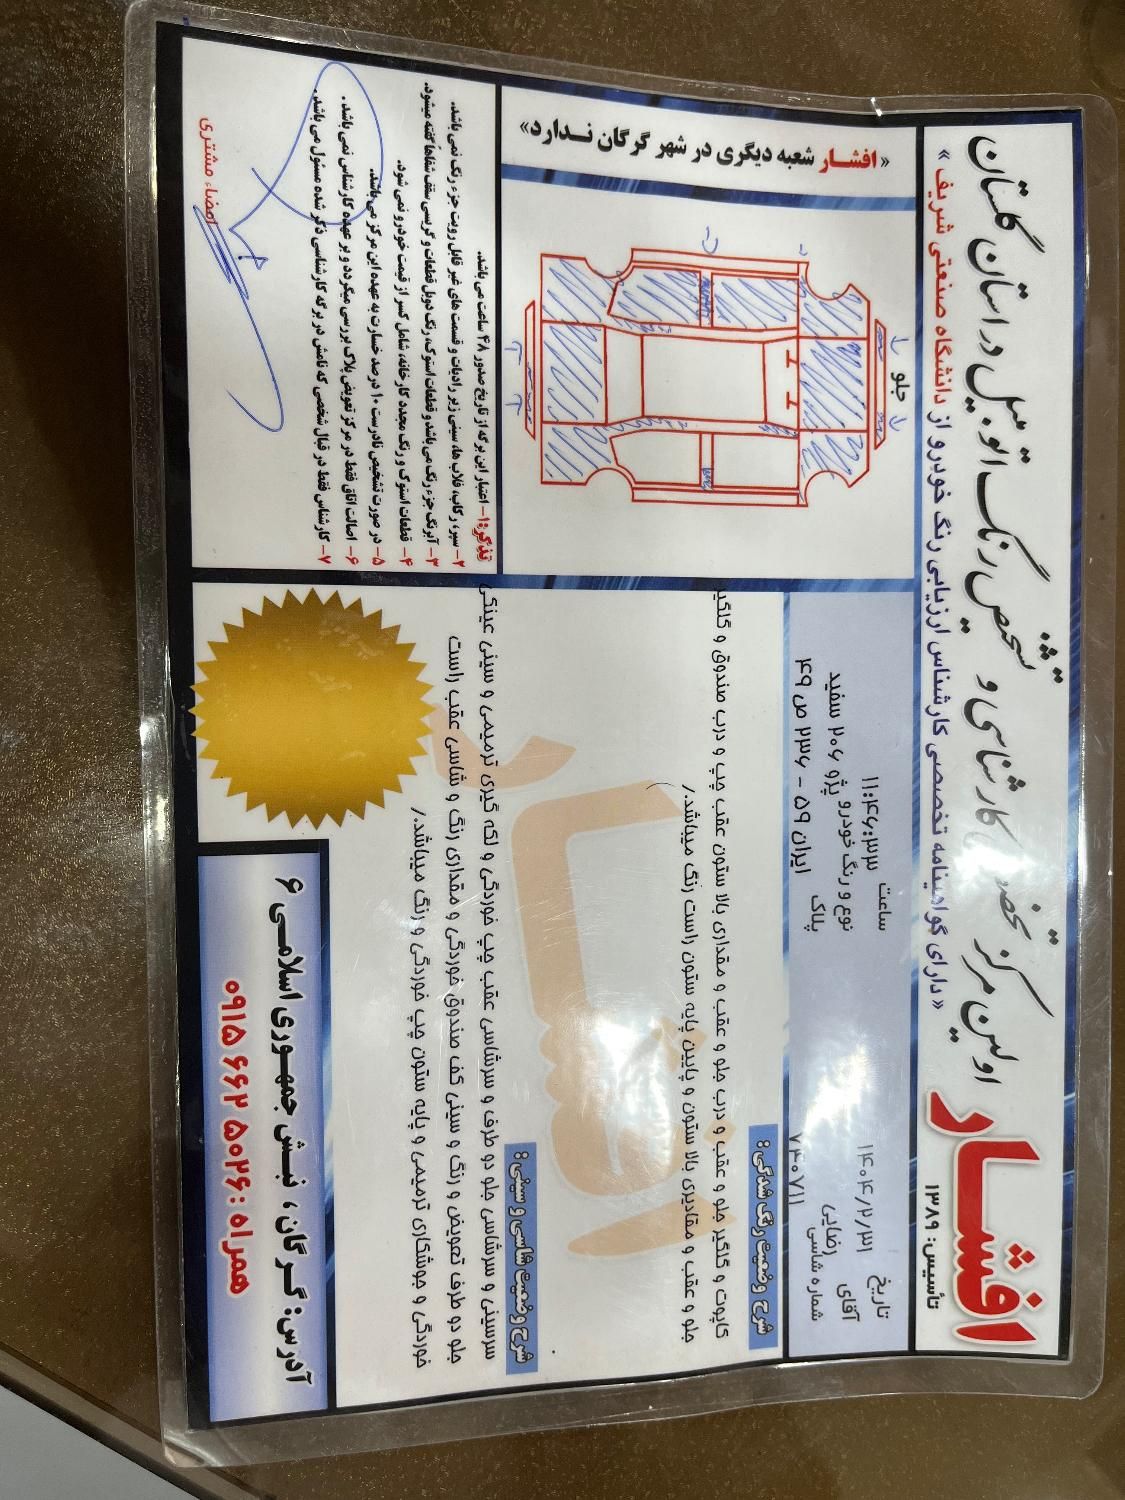 اولین مرکز تخصصی کارشناسی و تشخیص رنگ اتومبیل در استان گلستان
«دارای گواهینامه تخصصی کارشناس ارزیابی رنگ خودرو از دانشگاه صنعتی شریف»
افشار
تأسیس: ۱۳۸۹
تاریخ ۱۴۰۴/۲/۳۱
ساعت ۱۱:۴۶:۳۳
آقای رضایی
نوع و رنگ خودرو پژو ۲۰۶ سفید
شماره شاسی ۷۴۰۷۱۱
پلاک ایران ۵۹ - ۲۳۶ ص ۴۹
شرح وضعیت رنگ شدگی:
کاپوت و گلگیر جلو و عقب و درب جلو و عقب و مقداری بالا ستون عقب چپ و درب صندوق و گلگیر
جلو و عقب و مقادیری بالا ستون و پایین پایه ستون راست رنگ میباشد./
شرح وضعیت شاسی و سینی:
سرسینی و سرشاسی جلو دو طرف و سرشاسی عقب چپ خوردگی و لکه گیری ترمیمی و سینی عینکی
جلو دو طرف تعویض و رنگ و سینی کف صندوق خوردگی و مقداری رنگ و شاسی عقب راست
خوردگی و جوشکاری ترمیمی و پایه ستون چپ خوردگی و رنگ میباشد./
آدرس: گرگان، نبش جمهوری اسلامی ۶
همراه: ۰۹۱۵ ۶۶۲ ۵۰۲۶
« افشار شعبه دیگری در شهر گرگان ندارد»
جلو
تذکر: ۱- اعتبار این برگه از تاریخ صدور ۴۸ ساعت می باشد.
۲- سپر، رکاب، قلاب ها، سینی زیر رادیات و قسمت های غیر قابل رویت جزء رنگ نمی باشد.
۳- آبرنگ جزء رنگ می باشد و قطعات استوک، رنگ دوبل قطعات و گریسی سقف شفاهاً گفته میشود.
۴- قطعات استوک و رنگ مجدد کارخانه، شامل کسر از قیمت خودرو نمی شود.
۵- در صورت تشخیص نادرست ۱۰ درصد خسارت به عهده این مرکز می باشد.
۶- اصالت اتاق فقط در مرکز تعویض پلاک بررسی میگردد و بر عهده کارشناس نمی باشد.
۷- کارشناس فقط در قبال شخصی که نامش در برگه کارشناسی ذکر شده مسئول می باشد.
امضاء مشتری